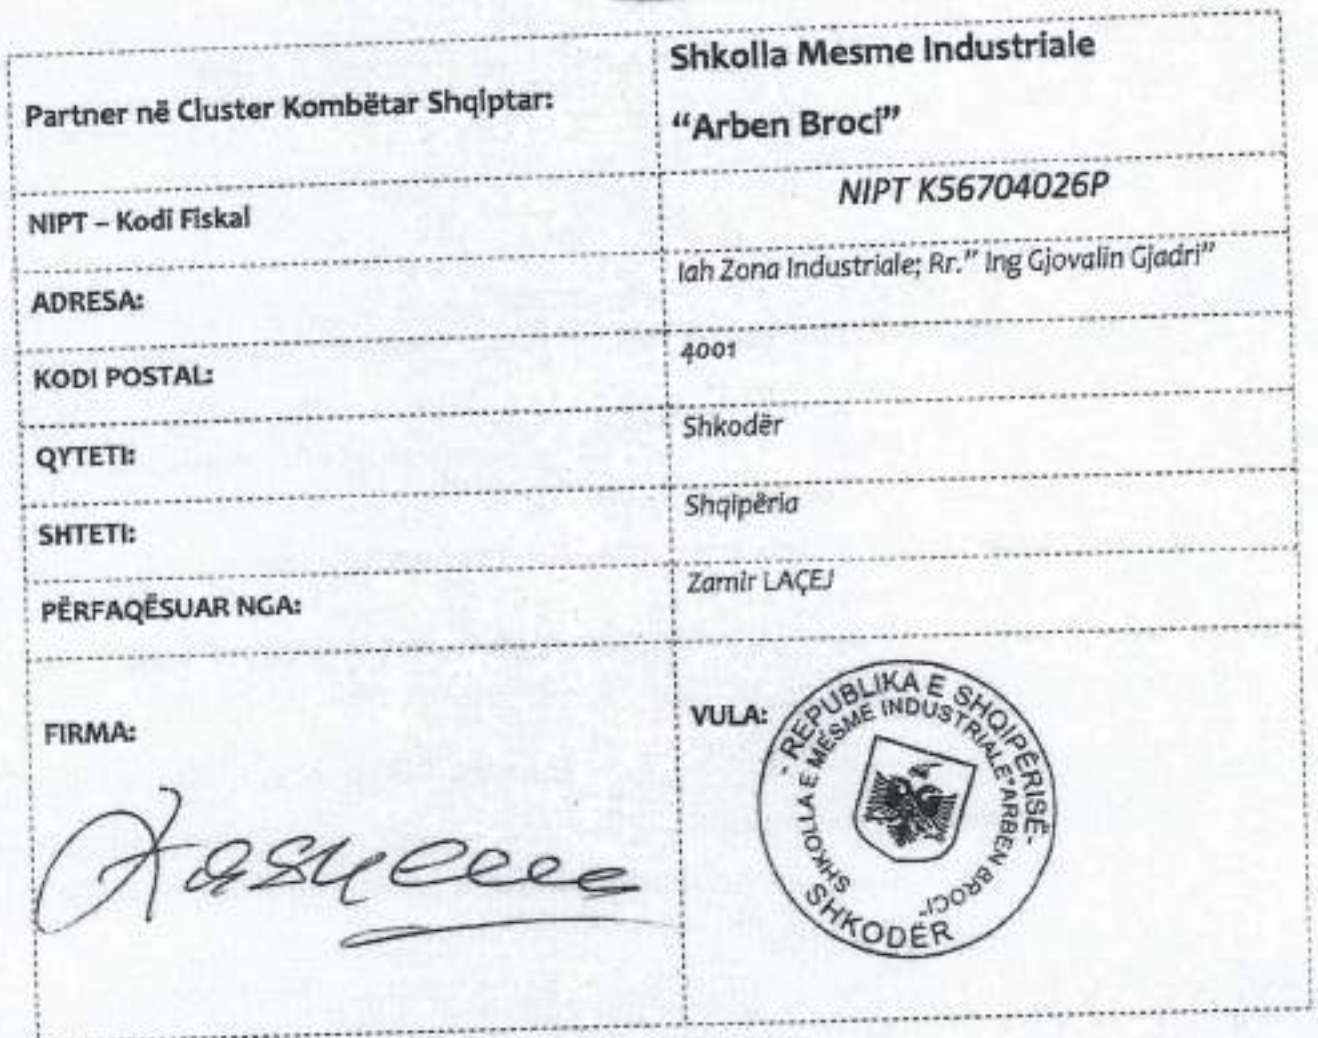 Partner në Cluster Kombëtar Shqiptar:
Shkolla Mesme Industriale
“Arben Broci”
NIPT – Kodi Fiskal
NIPT K56704026P
ADRESA:
lah Zona Industriale; Rr.” Ing Gjovalin Gjadri”
KODI POSTAL:
4001
QYTETI:
Shkodër
SHTETI:
Shqipëria
PËRFAQËSUAR NGA:
Zamir LAÇEJ
FIRMA:
VULA:
- REPUBLIKA E SHQIPËRISË -
SHKOLLA E MESME INDUSTRIALE"ARBEN BROCI"
SHKODËR